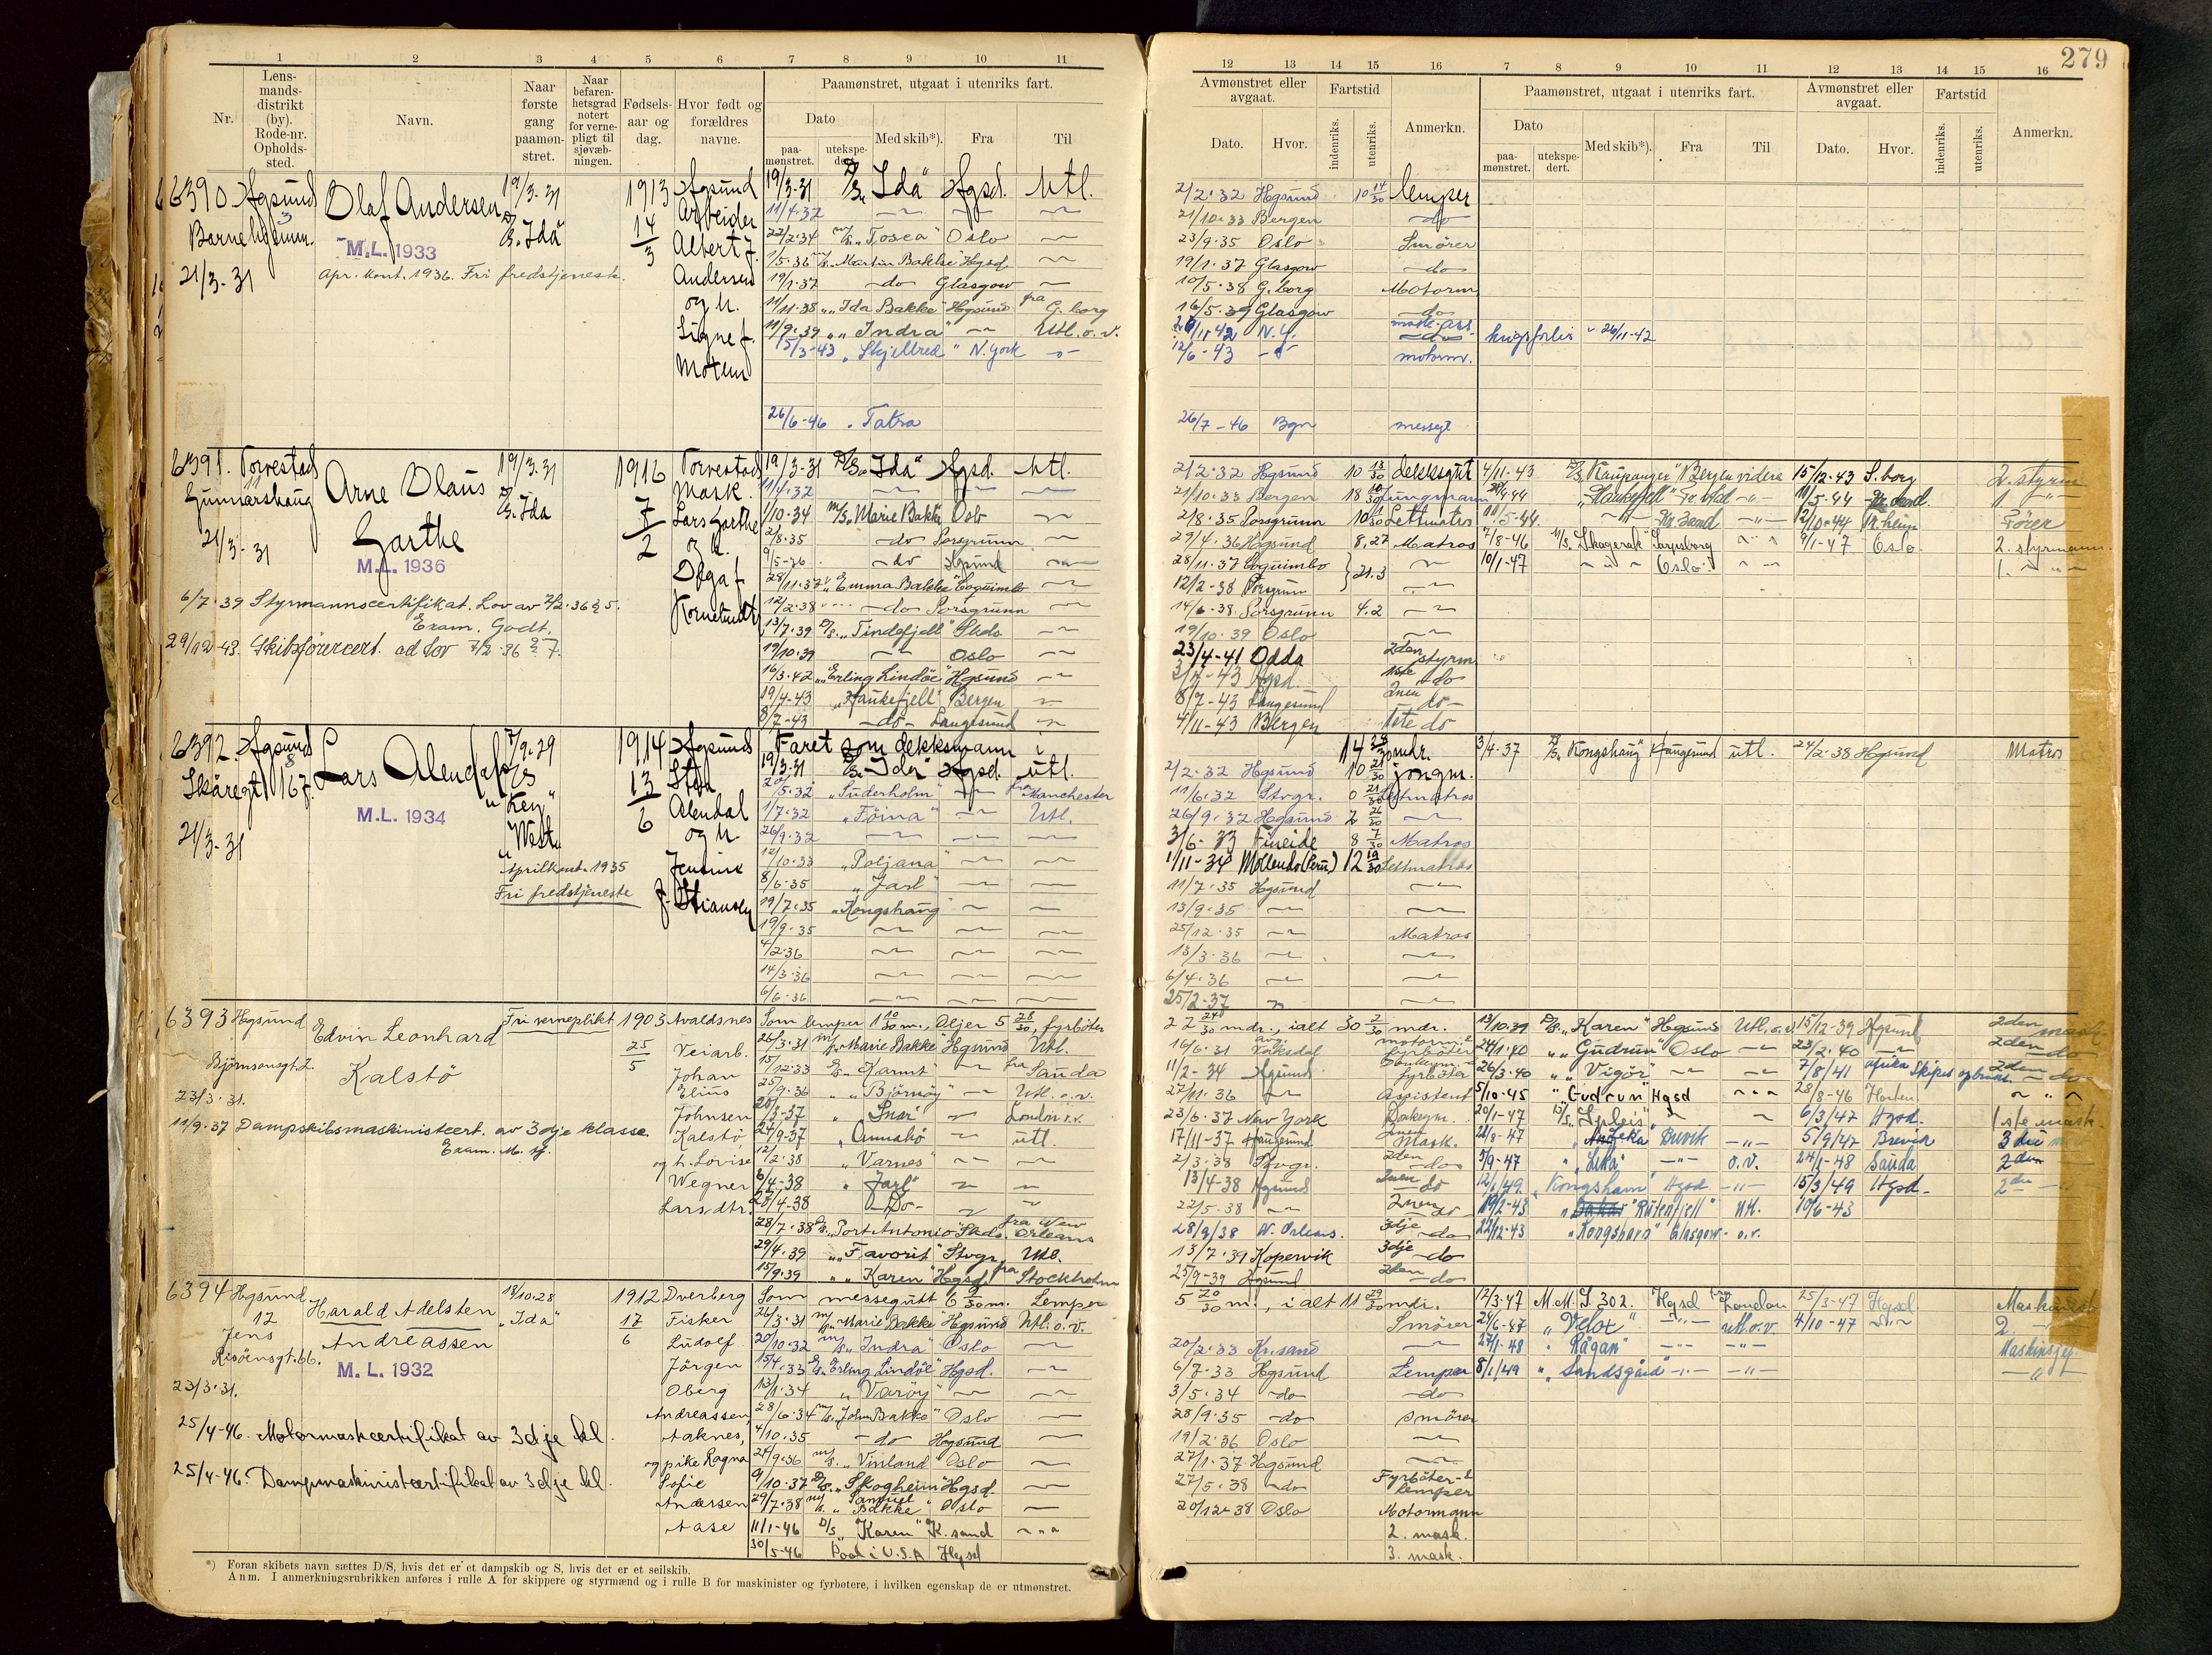 279
1 2 3 4 5 6 7 8 9 10 11
Nr.
Lens-
mands-
distrikt
(by).
Rode-nr.
Opholds-
sted.
Navn.
Naar
første
gang
paamøn-
stret.
Naar
befaren-
hetsgrad
notert
for verne-
pligt til
sjøvæb-
ningen.
Fødsels-
aar og
dag.
Hvor født og
forældres
navne.
Paamønstret, utgaat i utenriks fart.
Dato
paa-
mønstret.
utekspe-
dert.
Med skib*).
Fra
Til
6390 Hgsund Olaf Andersen 19/3-31 1913 Hgsund 19/3-31 D/S „Ida" Hgsd. Utl.
Arbeider 11/4-32
M.L. 1933 „Ida" 14/3 Albert J. 22/2-34 M/S „Tosca" Oslo
21/3-31 Apr. kont. 1936. Fri fredstjeneste. 1/5-36 Martin Bakke Hgsd
Andersen 19/1-37 do Glasgow
og h. 11/11-38 „Ida Bakke" Hgsund fra G.borg
Signe f. 11/9-39 „Indra" Utl. o. v.
15/3-43 „Skjelbred" N. York
26/6-46 Tatra
6391. Torvestad 19/3-31 1916 Torvestad 19/3-31 D/S „Ida" Hgsd. Utl.
Gunnarshaug Arne Olaus D/S Ida 7/2 Mask. 11/4-32
Garthe Lars Garthe 1/10-34 M/S „Marie Bakke Oslo
21/3-31 og h. 2/8-35 do Porsgrunn
M.L. 1936 Olga f. 9/5-36 do Hgsund
28/11-37 „Emma Bakke" Coquimbo
6/7-39 Styrmannscertifikat. Lov av 7/2-36 § 5. 12/2-38 do Porsgrunn
Exam. Godt. 13/7-39 D/S „Tindefjell"
29/12-43. Skibsførercert. ad lov 7/2-36 § 7. 19/10-39 Oslo
16/3-42 „Erling Lindøe" Hgsund
19/4-43 „Haukefjell" Bergen
8/7-43 -do- Langesund
6392. Hgsund Lars Alendal 7/9-29 1914 Hgsund Faret som dekksmann i
Skåregt 167. 13/6 19/3-31 D/S „Ida" Hgsd. utl.
„Key Alendal 2/5-32 „Suderholm" fra Manchester
M.L. 1934 West" og h. 1/7-32 „Föina" Utl.
21/3-31 26/9-32
Aprilkont. 1935 12/10-33 „Poljana"
Fri fredstjeneste 8/6-35 „Jarl"
19/7-35 „Kongshaug
19/9-35
4/2-36
14/3-36
6/6-36
6393 Hgsund Edvin Leonhard Fri verneplikt 1903 Avaldsnes Som lemper 1 10/30 m., Oljer 5 28/30, fyrbøter
Bjørnsonsgt. 2. Kalstö 25/5 Veiarb. 26/3-31 M/S „Marie Bakke" Hgsund Utl.
23/3-31. Johan 15/12-33 „Karmt" fra Sauda
Elius 25/9-36 „Björnöy" Utl. o.v.
Johnsen 20/3-37 „Snar" London o.v.
11/9-37 Dampskibsmaskinistcert. av 3dje klasse. Kalstö, 27/9-37 „Annahö utl.
Exam. M. tj. og h. Lovise 12/2-38 „Varnes"
Wegner 6/4-38 „Jarl"
Larsdtr. 28/4-38 -Do-
28/7-38 D/S „Port Antonio" fra New Orleans
29/4-39 „Favorit" Stvgr. Utl.
15/9-39 „Karen" Hgsd. fra Stockholm
6394 Hgsund Harald Adelsten 13/10-28 1912 Dverberg Som messegutt 6 9/30 m. Lemper
12 Andreassen „Ida" 17 Fisker 26/3-31 M/S „Marie Bakke Hgsund Utl. o. v.
Jens 6 Ludolf 20/10-32 M/S „Indra" Oslo
Risöensgt. 66. M.L. 1932 Jörgen 15/4-33 D/S „Erling Lindöe" Hgsd.
23/3-31. Oberg 13/1-34 „Varöy"
Andreassen, 28/6-34 M/S „John Bakke" Oslo
25/4-46. Motormaskcertifikat av 3dje kl. Aaknes, 4/10-35 -do- Hgsund
og pike Ragna 24/9-36 M/S „Vinland Oslo
25/4-46. Dampmaskinistcertifikat av 3dje kl. Sofie 9/10-37 D/S „Skogheim" Hgsd.
Andersen 29/7-38 M/S „Samuel Bakke" Oslo
Aase 11/1-46 D/S „Karen" K.sand
30/5-46 Pool i U.S.A Hgsd
*) Foran skibets navn sættes D/S, hvis det er et dampskib og S, hvis det er et seilskib.
Anm. I anmerkningsrubrikken anføres i rulle A for skippere og styrmænd og i rulle B for maskinister og fyrbøtere, i hvilken egenskap de er utmønstret.
12 13 14 15 16 7 8 9 10 11 12 13 14 15 16
Avmønstret eller
avgaat.
Dato.
Hvor.
Fartstid
indenriks.
utenriks.
Anmerkn.
Paamønstret, utgaat i utenriks fart.
Dato
paa-
mønstret.
utekspe-
dert.
Med skib*).
Fra
Til
Avmønstret eller
avgaat.
Dato.
Hvor.
Fartstid
indenriks.
utenriks.
Anmerkn.
2/2-32 Hgsund 10 14/30 lemper
21/10-33 Bergen do
23/9-35 Oslo Smörer
19/1-37 Glasgow do
10/5-38 G.borg Motorm
16/5-39 Glasgow do
26/11-42 N.Y. mask. ass. krigsforlis 26/11-42
12/6-43 motorm.
26/7-46 Bgn messegt
2/2-32 Hgsund 10 13/30 dekksgut 4/11-43 D/S „Kaupanger" Bergen videre 15/12-43 S.borg 2. styrm
21/10-33 Bergen 18 10/30 Jungmann „Haukefjell" 11/5-44 Kr.sand 1
2/8-35 Porsgrunn 10 Lettmatros 11/5-44. Kr.sand 12/10-44 Tr.heim Förer
29/4-36 Hgsund 8,27 Matros 7/8-46 M/S „Skagerak" Sarpsborg 9/1-47 Oslo. 2. styrmann
28/11-37 Coquimbo 21.3 10/1-47 Oslo. 1.
12/2-38 Porsgrunn
14/6-38 Porsgrunn 4.2
19/10-39 Oslo
23/4-41 Odda 2den styrm
Hgsd. 1ste do
8/7-43 Langesund 2nen do
4/11-43 Bergen 1ste do
14 mdr. 3/4-37 D/S „Kongshaug" Haugesund utl. 24/2-38 Hgsund Matros
2/2-32 Hgsund 10 21/30 jongm.
11/6-32 Stvgr. 0 21/30 Lettmatros
26/9-32 Hgsund 2 26/30
3/6-33 Fineide 8 7/30 Matros
1/11-34 Mollendo (Peru) 12 19/30 Lettmatros
11/7-35 Hgsund
13/9-35
25/12-35 Matros
13/3-36
6/4-36
25/2-37
22 24/30 mdr., ialt 30 2/30 mdr. 13/10-39 D/S „Karen" Hgsund Utl. o. v. 15/12-39 Hgsund 2den mask.
16/6-31 Vaksdal motorm. fyrböter 24/1-40 „Gudrun" Oslo 23/2-40 2den do
11/2-34 Hgsund fyrböter 26/3-40 „Vigör" 7/8/41 Afrika Skipet opbrakt. 2den do
27/11-36 Assistent 5/10-45 „Gudrun" Hgsd 28/8-46 Horten
23/6-37 New York Dekkm. 20/1-47 D/S „Spleis" 6/3/47 Hgsd. 1ste mask.
17/11-37 Haugesund 2nen Mask. 21/8-47 Brevik 5/9/47 Brevik 3die
2/3-38 Stvgr. 2den do 5/9-47 „Leka" o. v. 24/1-48 Sauda 2den
13/4-38 Hgsund 2nen do 12/1/49 „Kongshavn" Hgsd 15/3/49 Hgsd. 2den
22/5-38 2nen do 19/2-43 Dakar „Ruten­fjell" Utl. 10/6-43
28/9/38 N. Orleans. 3dje do 22/12-43 „Kongshavn" Glasgow o.v.
13/7-39 Kopervik 3dje do
25/9-39 Hgsund 2den do
5 20/30 m., i alt 11 29/30 mdr. 12/3-47 M.M.S. 302. Hgsd fra London 25/3-47 Hgsd.
Smörer 24/6-47 „Velox" utl. o.v. 4/10-47 2.
20/2-33 Kr.sand 27/1-48 „Rågan" Maskinsjef
6/7-33 Hgsund Lemper 8/1/49 „Sandsgård"
3/5-34 do do
28/9-35 do smörer
19/2-36 Oslo
27/1-37 Hgsund
27/5-38 do Fyrböter- & lemper
20/12-38 Oslo Motormann
2. mask.
3. mask.